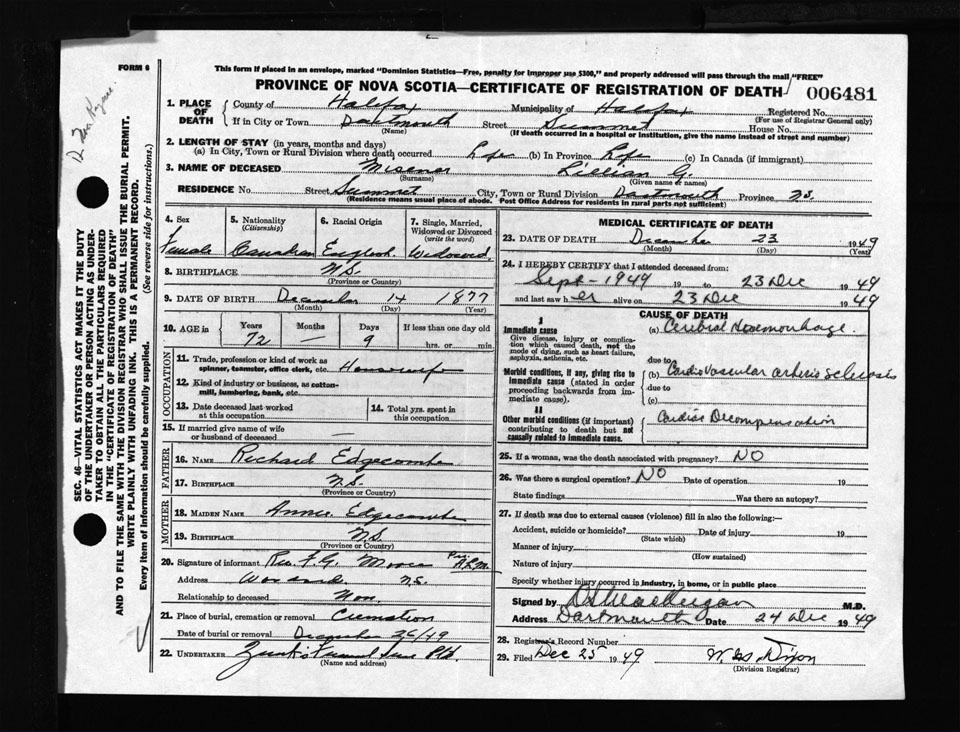 FORM 6
This form if placed in an envelope, marked "Dominion Statistics—Free, penalty for improper use $300," and properly addressed will pass through the mail "FREE"
PROVINCE OF NOVA SCOTIA—CERTIFICATE OF REGISTRATION OF DEATH
006481
1. PLACE OF DEATH { County of Halifax Municipality of Halifax Registered No.
(For use of Registrar General only)
If in City or Town Dartmouth Street Summet House No.
(Name) (If death occurred in a hospital or institution, give the name instead of street and number)
2. LENGTH OF STAY (in years, months and days)
(a) In City, Town or Rural Division where death occurred Life (b) In Province Life (c) In Canada (if immigrant)
3. NAME OF DECEASED Lillian G.
(Surname) (Given name or names)
RESIDENCE No. Street Summet City, Town or Rural Division Dartmouth Province N.S.
(Residence means usual place of abode. Post Office Address for residents in rural parts not sufficient)
4. Sex 5. Nationality 6. Racial Origin 7. Single, Married,
(Citizenship) Widowed or Divorced
(write the word)
Female Canadian English Widowed
8. BIRTHPLACE N.S.
(Province or Country)
9. DATE OF BIRTH December 14 1877
(Month) (Day) (Year)
10. AGE in Years Months Days If less than one day old
72 — 9 hrs. or min.
OCCUPATION
11. Trade, profession or kind of work as
spinner, teamster, office clerk, etc. Housewife
12. Kind of industry or business, as cotton-
mill, lumbering, bank, etc.
13. Date deceased last worked
at this occupation
14. Total yrs. spent in
this occupation
15. If married give name of wife
or husband of deceased —
FATHER
16. NAME Richard Edgecombe
17. BIRTHPLACE N.S.
(Province or Country)
MOTHER
18. MAIDEN NAME Annie Edgecombe
19. BIRTHPLACE N.S.
(Province or Country)
20. Signature of informant Rev. F.G. Per A.L.M.
Address N.S.
Relationship to deceased Non.
21. Place of burial, cremation or removal Cremation
Date of burial or removal December 26/49
22. UNDERTAKER Funeral
(Name and address)
MEDICAL CERTIFICATE OF DEATH
23. DATE OF DEATH December 23 1949
(Month) (Day) (Year)
24. I HEREBY CERTIFY that I attended deceased from:
Sept - 1949 19 to 23 Dec 1949
and last saw her alive on 23 Dec 1949
CAUSE OF DEATH
I
Immediate cause
Give disease, injury or complica-
tion which caused death, not the
mode of dying, such as heart failure,
asphyxia, asthenia, etc.
(a) Cerebral Haemorrhage.
due to
Morbid conditions, if any, giving rise to
immediate cause (stated in order
proceeding backwards from im-
mediate cause).
(b) Cardio Vascular arterio sclerosis
due to
(c)
II
Other morbid conditions (if important)
contributing to death but not
causally related to immediate cause.
Cardiac Decompensation
25. If a woman, was the death associated with pregnancy? NO
26. Was there a surgical operation? NO Date of operation 19
State findings Was there an autopsy?
27. If death was due to external causes (violence) fill in also the following:—
Accident, suicide or homicide? Date of injury 19
(State which)
Manner of injury
(How sustained)
Nature of injury
Specify whether injury occurred in industry, in home, or in public place
Signed by M.D.
Address Dartmouth Date 24 Dec 1949
28. Registrar's Record Number
29. Filed Dec 25 1949 Dixon
(Division Registrar)
SEC. 46—VITAL STATISTICS ACT MAKES IT THE DUTY
OF THE UNDERTAKER OR PERSON ACTING AS UNDER-
TAKER TO OBTAIN ALL THE PARTICULARS REQUIRED
IN THE "CERTIFICATE OF REGISTRATION OF DEATH"
AND TO FILE THE SAME WITH THE DIVISION REGISTRAR WHO SHALL ISSUE THE BURIAL PERMIT.
WRITE PLAINLY WITH UNFADING INK. THIS IS A PERMANENT RECORD.
Every item of information should be carefully supplied. (See reverse side for instructions.)